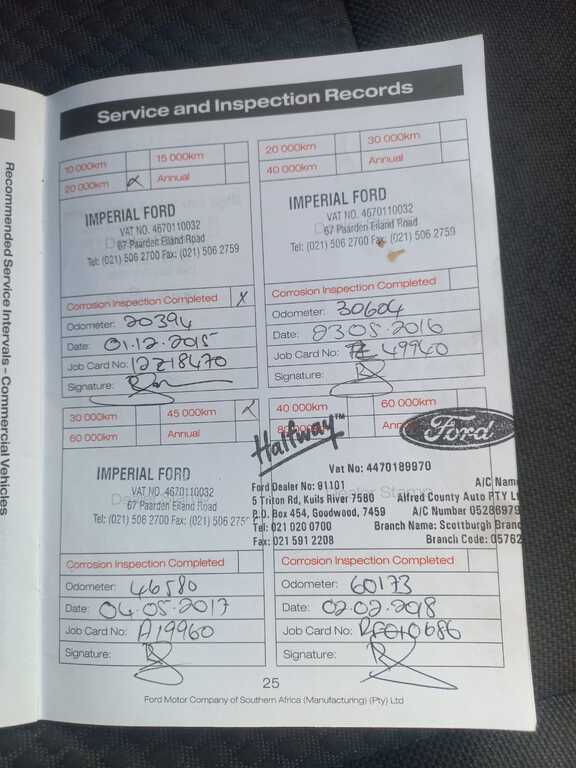 Service and Inspection Records
10 000km 15 000km
20 000km Annual
IMPERIAL FORD
VAT NO. 4670110032
67 Paarden Eiland Road
Tel: (021) 506 2700 Fax: (021) 506 2759
Corrosion Inspection Completed X
Odometer: 20394
Date: 01.12.2015
Job Card No: 12Z18470
Signature:
20 000km 30 000km
40 000km Annual
IMPERIAL FORD
VAT NO. 4670110032
67 Paarden Eiland Road
Tel: (021) 506 2700 Fax: (021) 506 2759
Corrosion Inspection Completed
Odometer: 30604
Date: 23 05.2016
Job Card No: 49940
Signature:
30 000km 45 000km
60 000km Annual
IMPERIAL FORD
VAT NO. 4670110032
67 Paarden Eiland Road
Tel: (021) 506 2700 Fax: (021) 506 275
Corrosion Inspection Completed
Odometer: 46580
Date: 04.05.2017
Job Card No: A19960
Signature:
40 000km 60 000km
Halfway™
Ford
Vat No: 4470189970
Ford Dealer No: 91101
5 Triton Rd, Kuils River 7580
P.O. Box 454, Goodwood, 7459
Tel: 021 020 0700
Fax: 021 591 2208
A/C Name
Alfred County Auto PTY Lt
A/C Number 05286979
Branch Name: Scottburgh Branc
Branch Code: 05762
Corrosion Inspection Completed
Odometer: 60173
Date: 02.02.2018
Job Card No:
Signature:
25
Ford Motor Company of Southern Africa (Manufacturing) (Pty) Ltd
Recommended Service Intervals – Commercial Vehicles